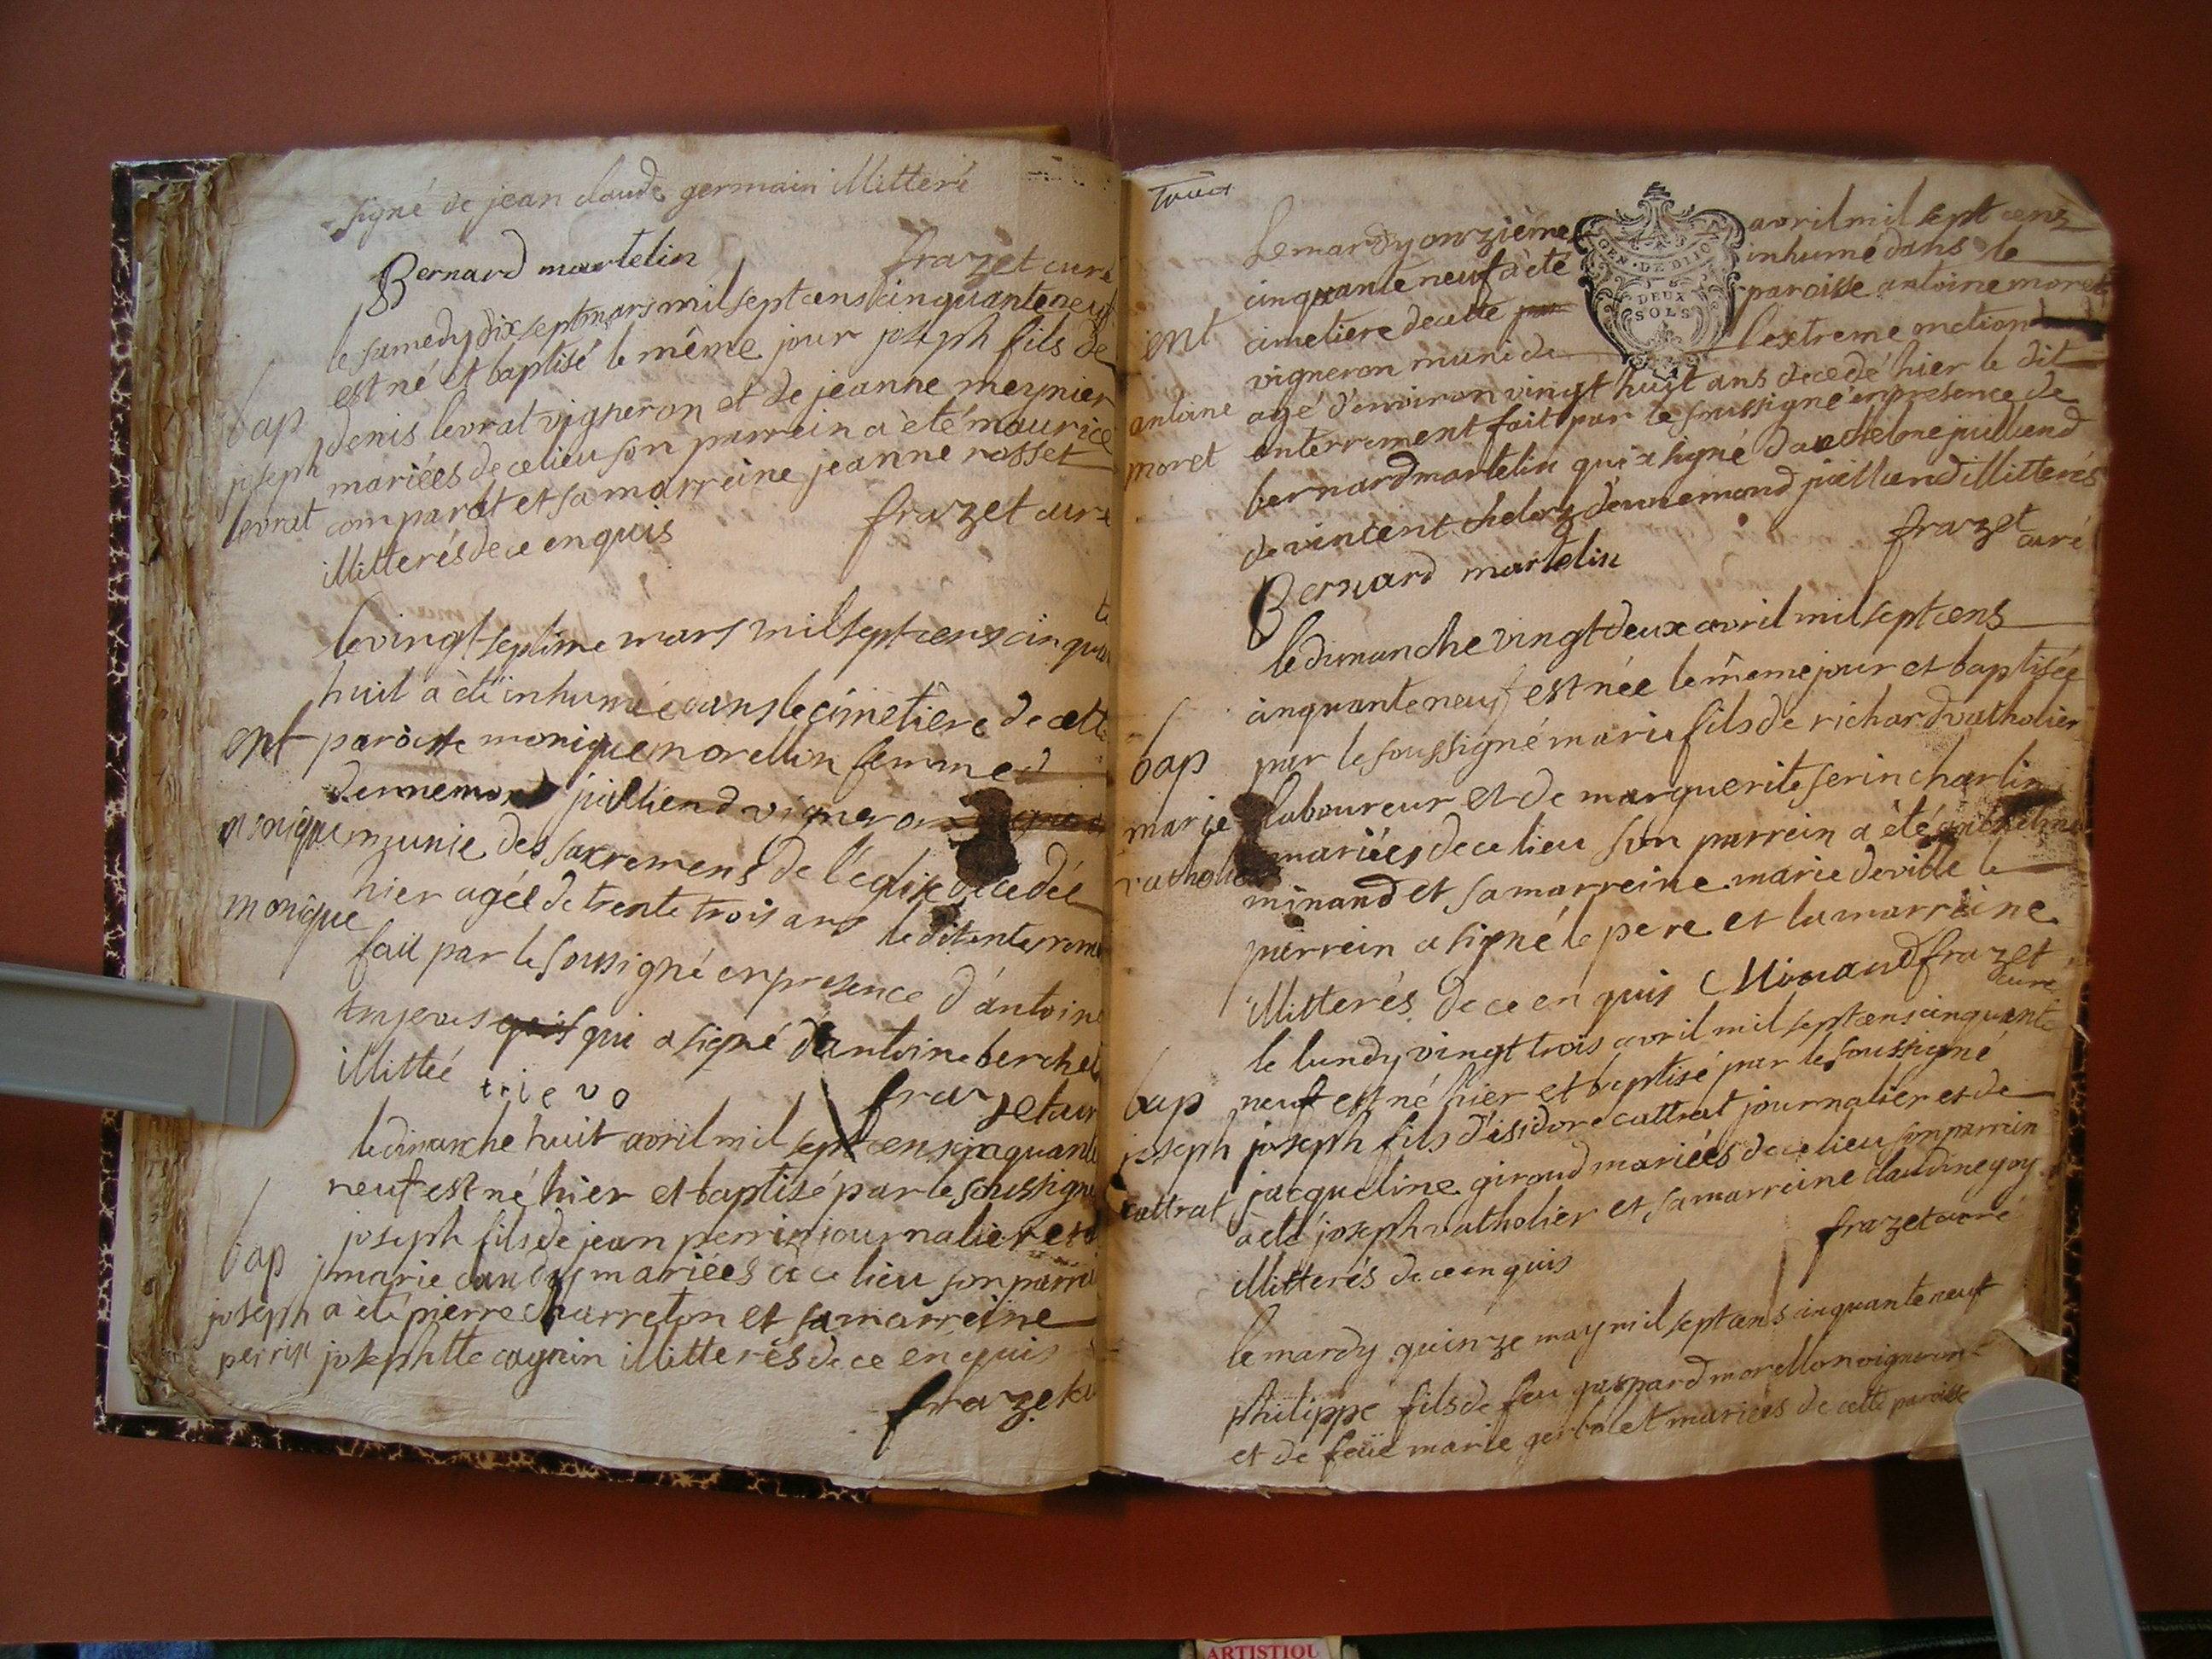 signé de jean claude germain illitteré
Bernard martelin
frazet curé
le samedy dix sept mars mil sept cens cinquante neuf
est né et baptisé le même jour joseph fils de
bap
joseph
levrat
denis levrat vigneron et de jeanne meynier
mariées de ce lieu son parrein a èté maurice
comparat et sa marreine jeanne rosset
illitterés de ce enquis
frazet curé
le vingt septime mars mil sept cens cinquan
te
huit a èté inhumée dans le cimetière de cette
ent
monique
monique
paroisse monique morellon femme d
dennemond juilliend vigneron
munie des sacremens de l'église decedée
hier agée de trente trois ans le dit enterreme
fait par le soussigné en presence d'antoine
qui a signé d'antoine berchet
illitteé
trievo
frazet cur
le dimanche huit avril mil sept cens cinquante
neuf est né hier et baptisé par le soussigné
bap
joseph
perrin
joseph fils de jean perrin journalier et d
marie mariées de ce lieu son parrei
a èté pierre charreton et sa marreine
josephtte cognin illitterés de ce enquis
frazet cu
le mardy onzième avril mil sept cens
cinquante neuf a èté inhumé dans le
GEN · DE DIJON
DEUX
SOLS
cimetiere de cette par paroisse antoine moret
ent
antoine
moret
vigneron muni de l'extreme onction
agé d'environ vingt huit ans decedé hier le dit
enterrement fait par le soussigné en presence de
bernard martelin qui a signé d'anthelme juilliend
de vincent cheloz dennemond juilliend illitterés
Bernard martelin
frazet
curé
le dimanche vingt deux avril mil sept cens
cinquante neuf est née le même jour et baptisée
bap
marie
vatholier
par le soussigné marie fils de richard vatholier
laboureur et de marguerite serin charlin
mariées de ce lieu son parrein a èté anthelme
minand et sa marreine marie deville le
parrein a signé le pere et la marreine
illitterés de ce en quis Minand frazet
curé
le lundy vingt trois avril mil sept cens cinquante
bap
joseph
cattrat
neuf est né hier et baptisé par le soussigné
joseph fils d'isidore cattrat journalier et de
jacqueline giroud mariées de ce lieu son parrein
a èté joseph vatholier et sa marreine claudine goy
illitterés de ce en quis
frazet curé
le mardy quinze may mil sept cens cinquante neuf
philippe fils de feu gaspard morellon vigneron
et de feüe marie gerbolet mariées de cette paroisse
ARTISTIQU